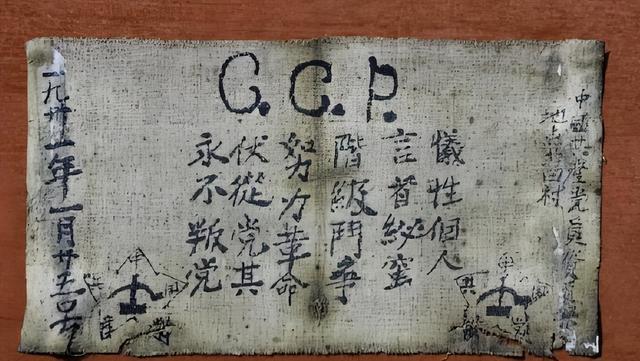 C.C.P.
中國共產党員
地点 田村
犠牲個人
言首 蜜
階級鬥争
努力革命
伏從党其
永不叛党
一九卅一年一月廿五号